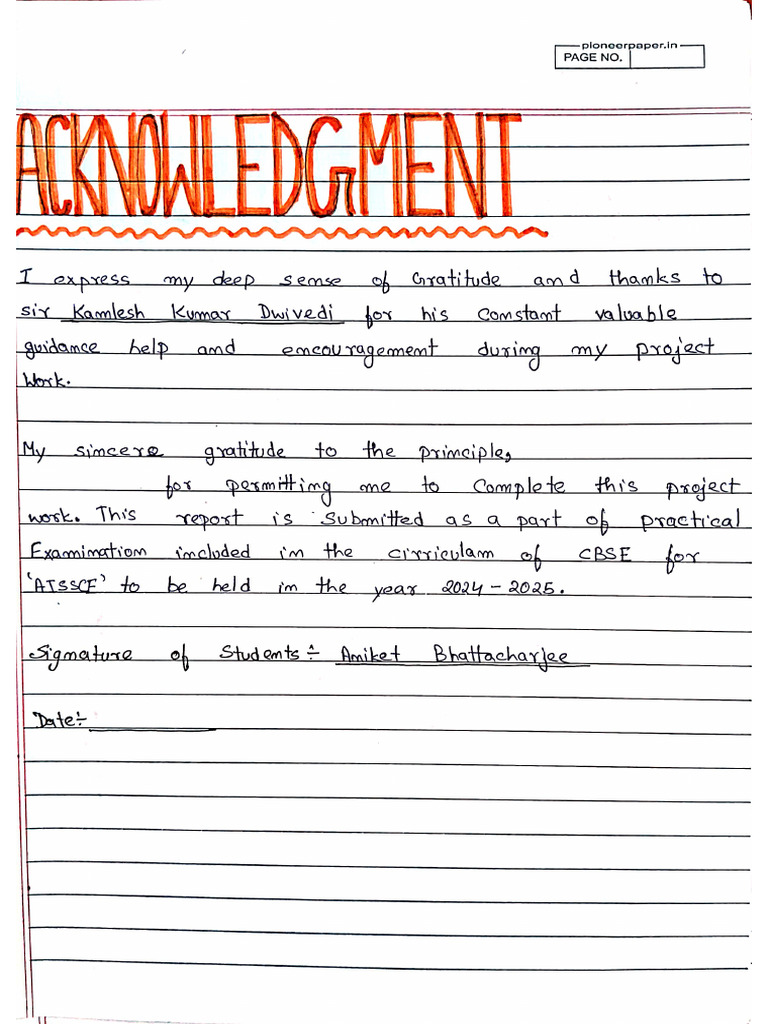 pioneerpaper.in
PAGE NO.
ACKNOWLEDGMENT
I express my deep sense of Gratitude and thanks to
sir Kamlesh Kumar Dwivedi for his constant valuable
guidance help and encouragement during my project
Work.
My sincere gratitude to the principle,
for permitting me to complete this project
work. This report is submitted as a part of practical
Examination included in the cirriculam of CBSE for
'AISSCE' to be held in the year 2024-2025.
Signature of Students:- Aniket Bhattacharjee
Date:-